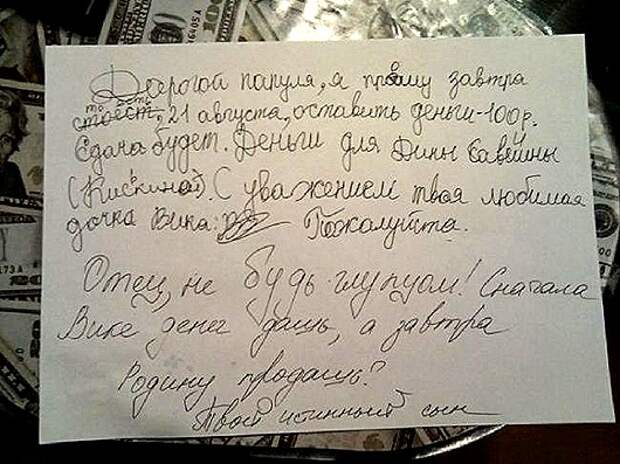 Дорогой папуля, я прошу завтра
то есть
стоест, 21 августа, оставить деньги-100р.
Сдача будет. Деньги для Дины Савейны
(Кискиной). С уважением твоя любимая
дочка Вика. Пожалуйста.
Отец, не будь глупцом! Сначала
Вике денег дашь, а завтра
Родину продашь?
Твой истинный сын
100